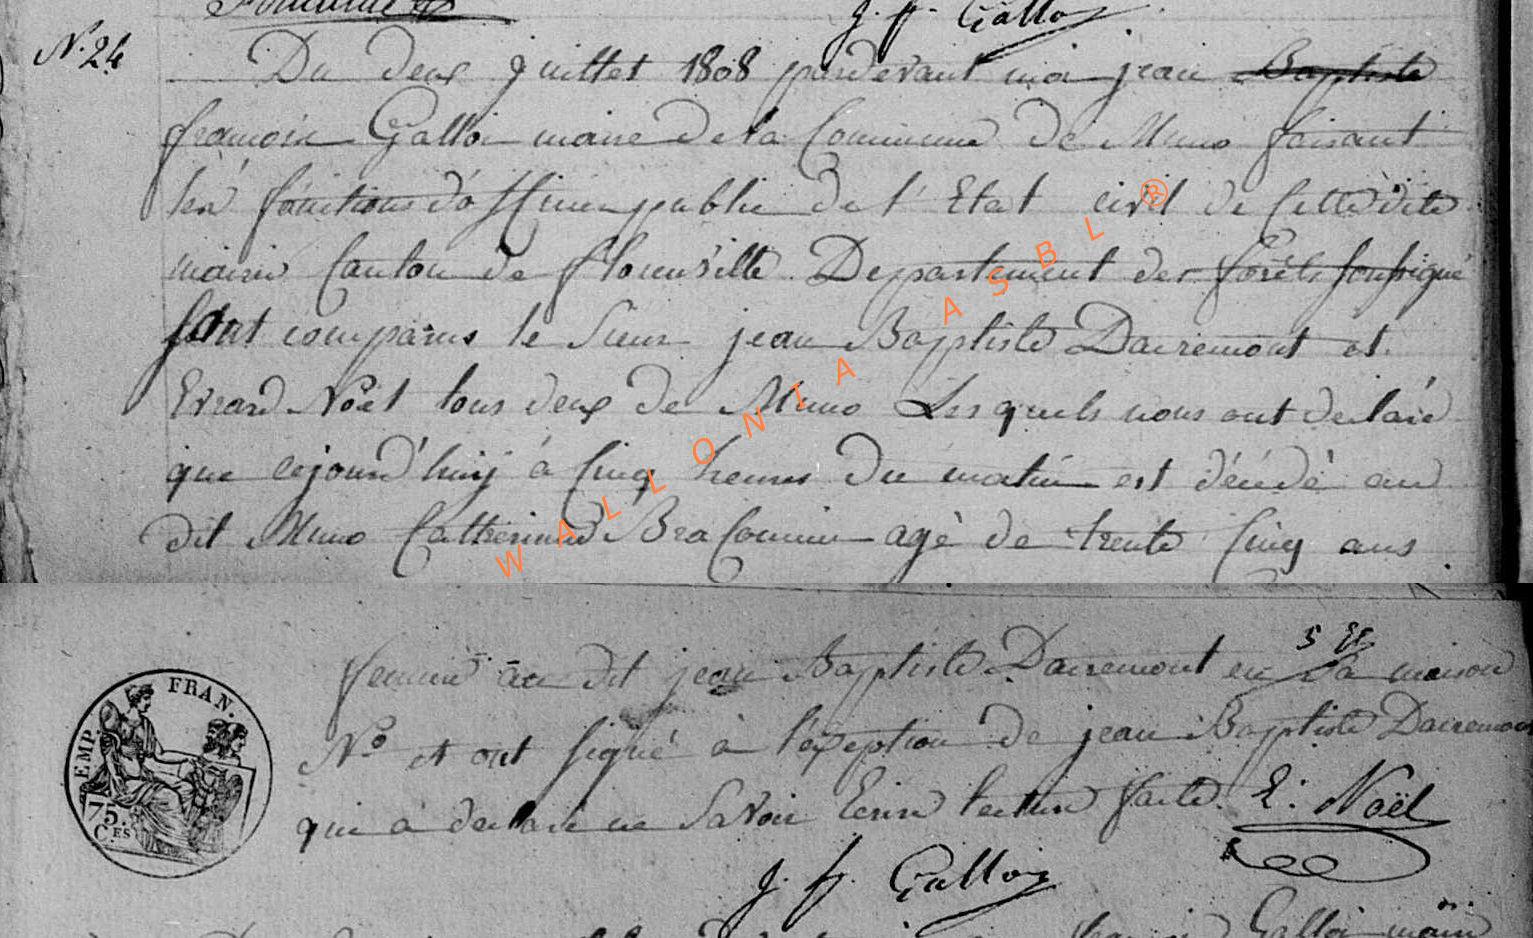 J. f. Galloi
N. 24
Du deux juillet 1808 pardevant moi jean Baptiste
francois Galloi maire de la Commune de Muno faisant
les fonctions d'officier public de l'Etat civil de Cette dite
mairie Canton de florenville Departement des forêts soussigné
sont comparus le Sieur jean Baptiste Dairemont et
Evrard Noël tous deux de Muno Lesquels nous ont declaré
que cejourd'huij à Cinq heures du matin est décédé au
dit Muno Catherinne BraConnier agé de trente Cinq ans
WALLONIA ASBL ®
femme au dit jean Baptiste Dairemont en sa maison
N.º et ont signé à l'éxeption de jean Baptiste Dairemont
qui a declaré ne Savoir Ecrire lecture faite. E: Noël
J. f. Galloi
EMP. FRAN.
75. C.ES
Galloi maire